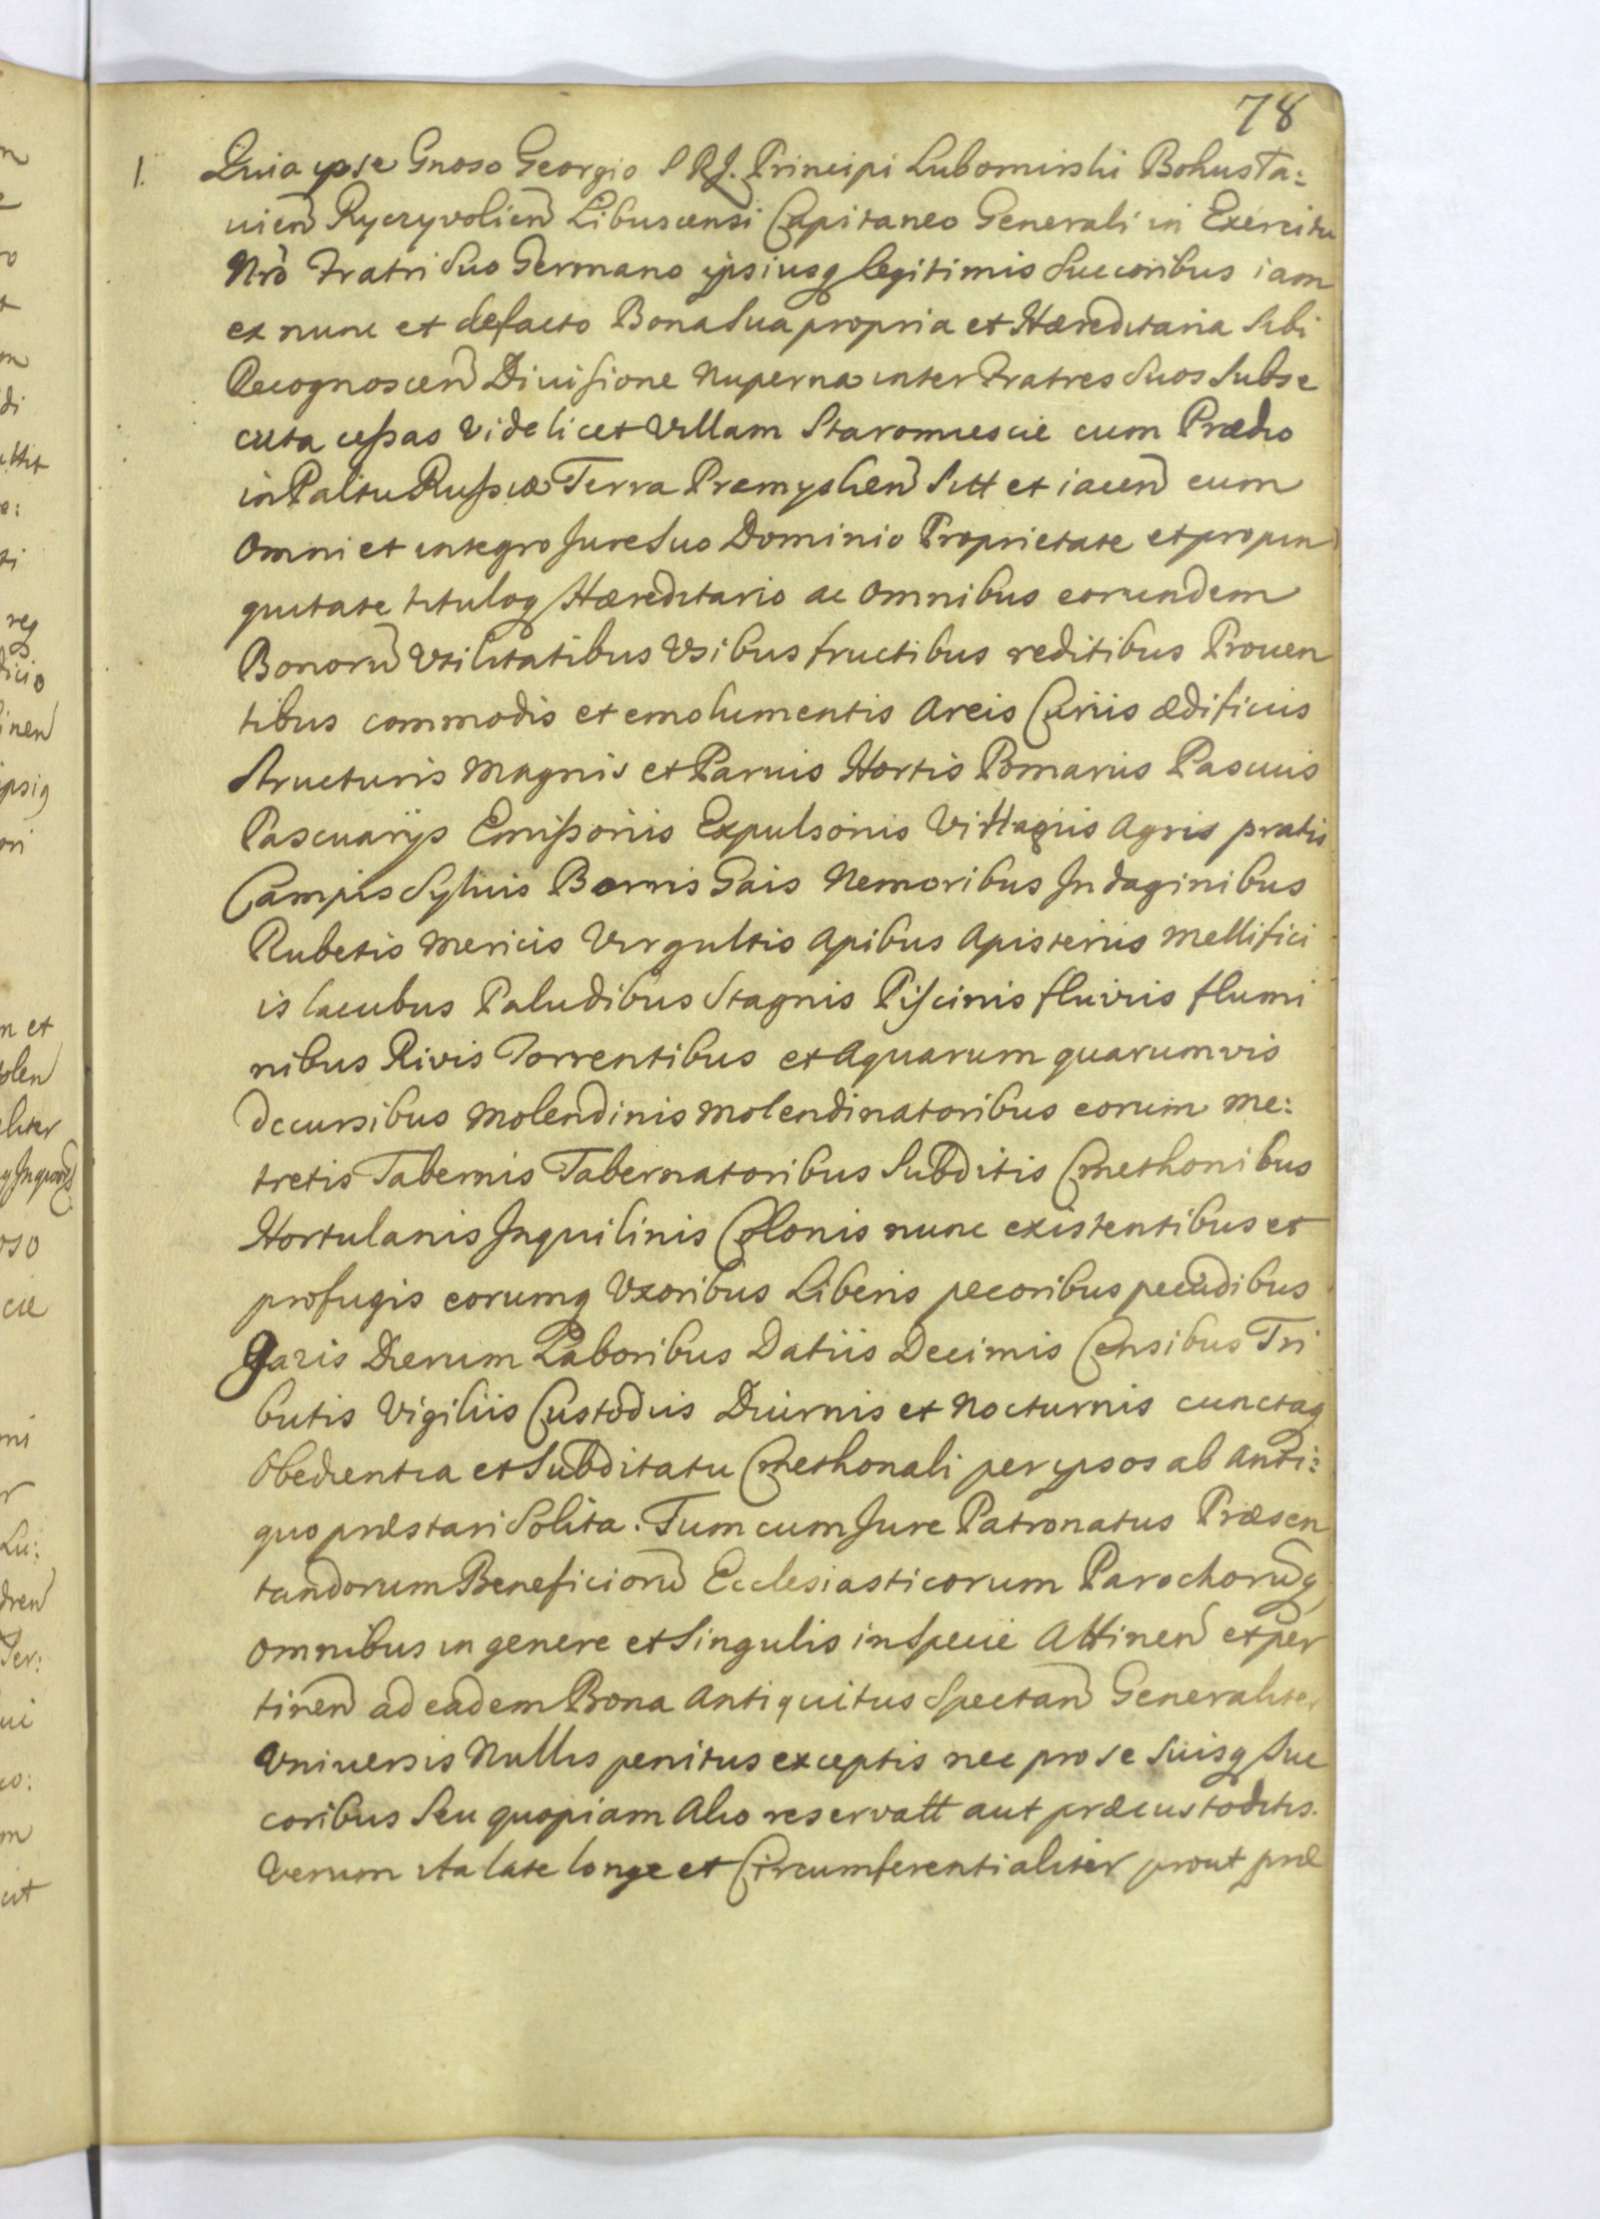 78
1. Quia ipse Gnoso Georgio S R J. Principi Lubomirski Bohusta:
vien Ryczyvolien Libuscensi Capitaneo Generali in Exercitu
Nro Fratri Suo Germano ipsiusq legitimis Succoribus iam
ex nunc et defacto Bona Sua propria et Hæreditaria Sibi
Recognoscen Divisione Nuperna inter Fratres Suos Subse
cuta cessas Videlicet Villam Staromiescie cum Prædio
in Paltu Russiæ Terra Premyslien Sitt et iacen cum
Omni et integro Jure Suo Dominio Proprietate et propin
quitate tituloq Hæreditario ac Omnibus eorundem
Bonoru Vtilitatibus Vsibus fructibus reditibus Proven
tibus commodis et emolumentis Areis Curiis ædificiis
Structuris Magnis et Parvis Hortis Pomariis Pascuis
Pascuarijs Emissoriis Expulsoriis Villagiis Agris pratis
Campis Sylvis Borris Gais Nemoribus Indaginibus
Rubetis Mericis Virgultis Apibus Apisteriis Mellifici
is lacubus Paludibus Stagnis Piscinis fluviis flumi
nibus Rivis Torrentibus et Aquarum quarumvis
decursibus Molendinis Molendinatoribus eorum Me:
tretis Tabernis Tabernatoribus Subditis Cmethonibus
Hortulanis Inquilinis Colonis nunc existentibus et
profugis eorumq Vxoribus Liberis pecoribus pecudibus
Gazis Dierum Laboribus Datiis Decimis Censibus Tri
butis Vigiliis Custodiis Diurnis et Nocturnis cunctaq
Obedientia et Subditatu Cmethonali per ipsos ab Anti:
quo præstari Solita. Tum cum Jure Patronatus Præsen
tandorum Beneficioru Ecclesiasticorum Parochoruq
omnibus in genere et Singulis in Specie Attinen et per
tinen ad eadem Bona Antiquitus Spectan Generaliter
Vniversis Nullis penitus exceptis nec pro se Suisq Suc
coribus Seu quopiam Alio reservatt aut præcustoditis.
Verum ita late longe et Circumferentialiter prout præ